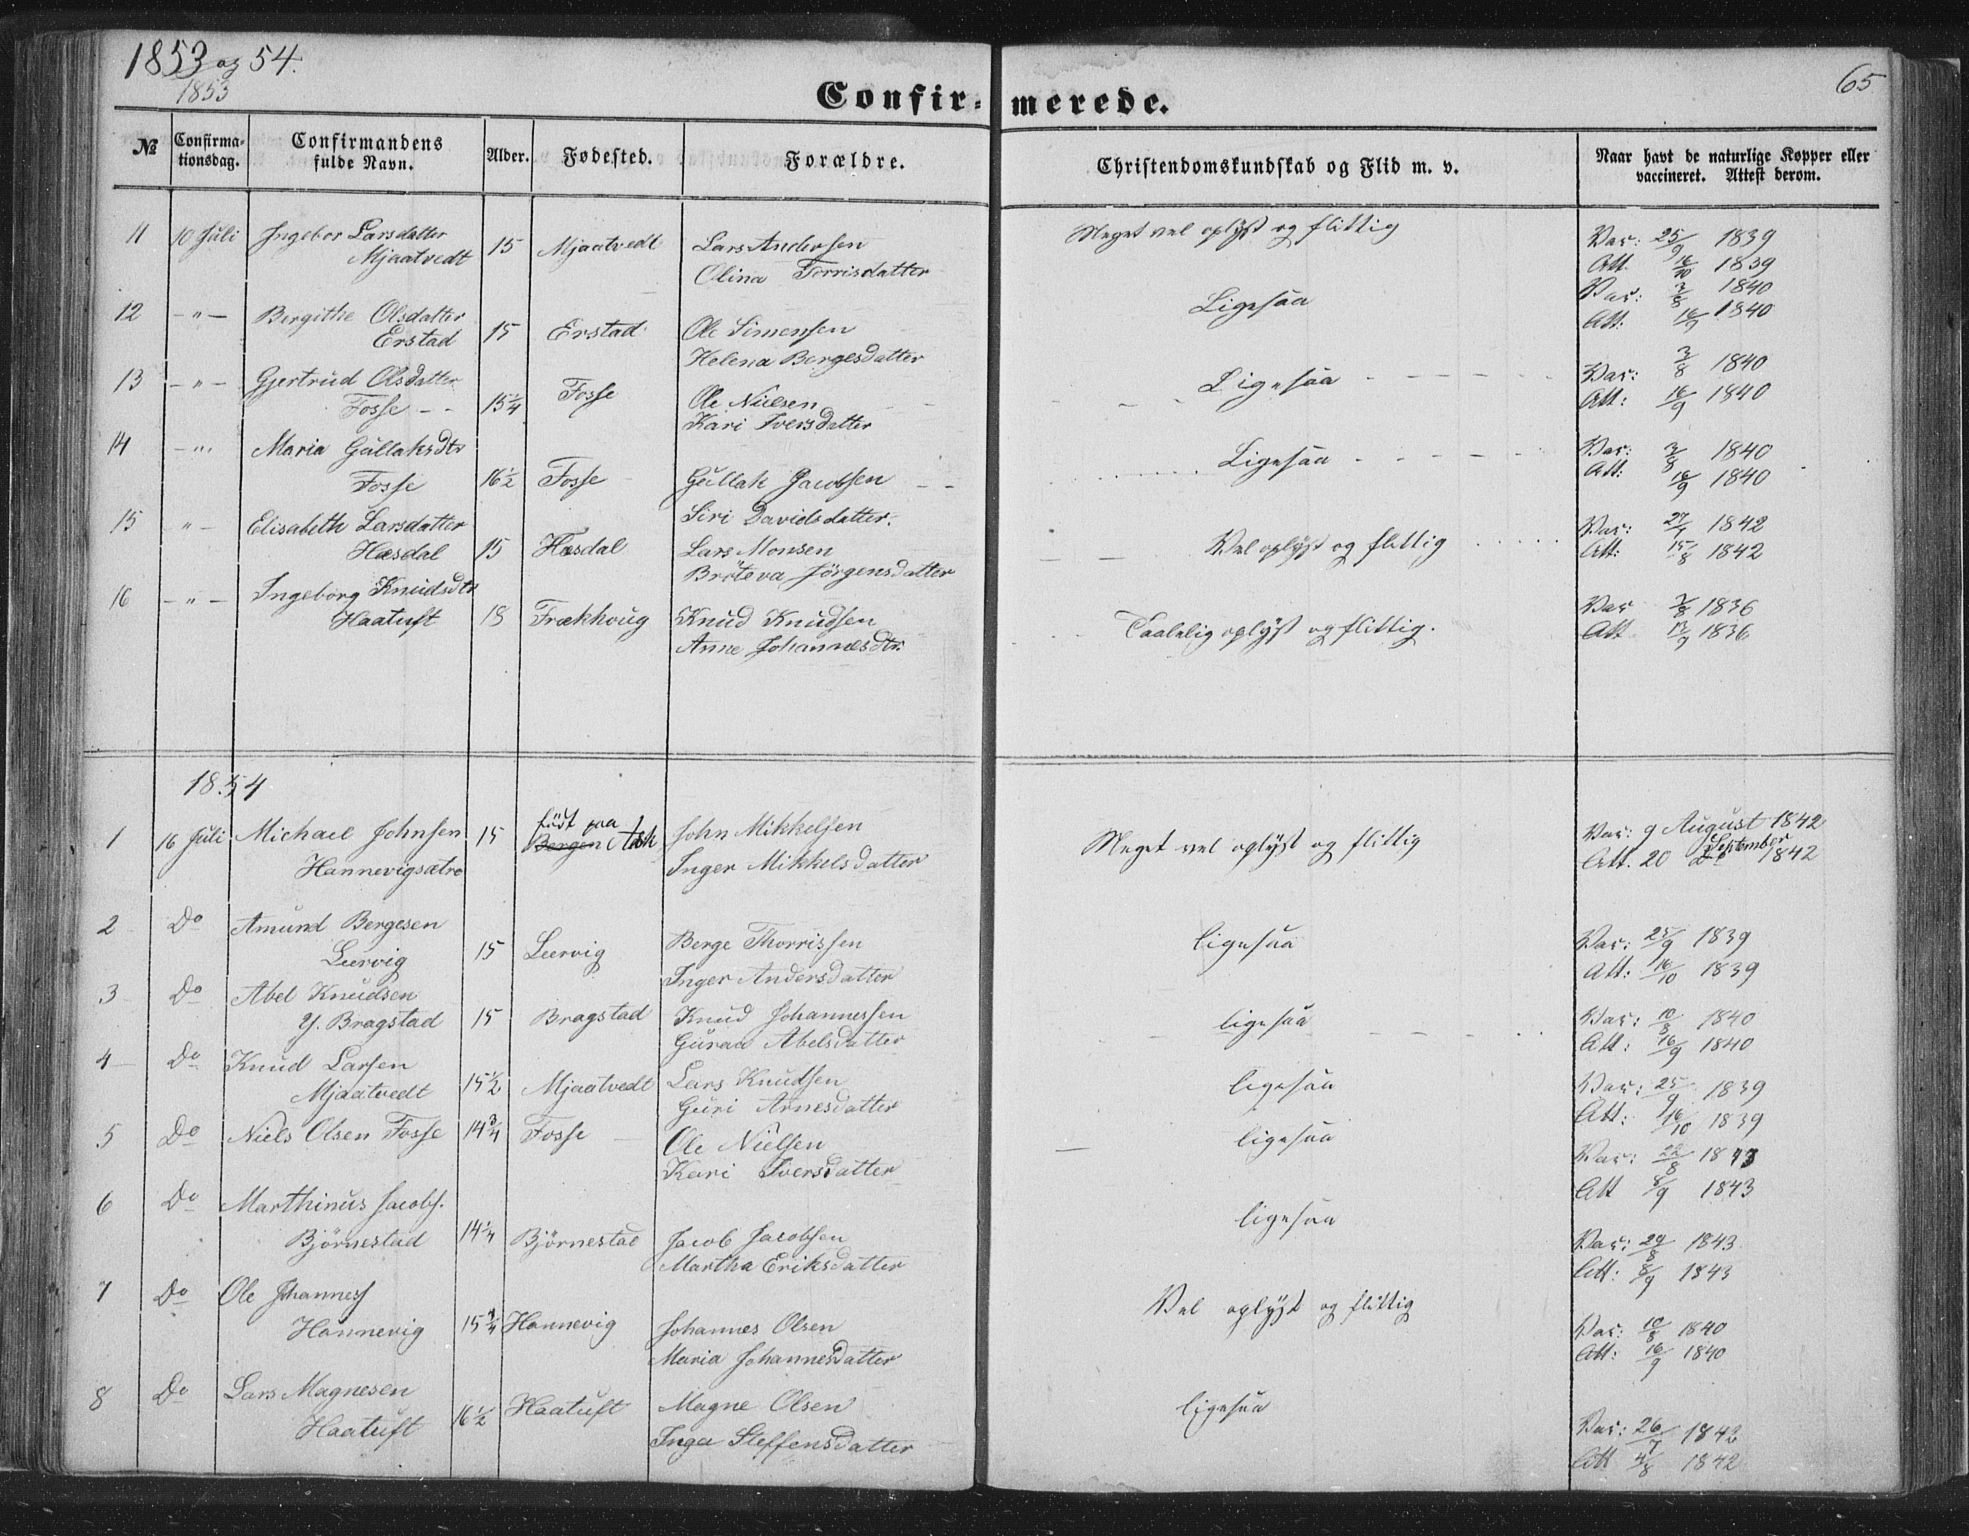 1853 og 54.
65
1853
Confir- merede.
No
Confirma-
tionsdag.
Confirmandens
fulde Navn.
Alder.
Fødested.
Forældre.
Christendomskundskab og Flid m. v.
Naar havt de naturlige Kopper eller
vaccineret. Attest derom.
11 10 Juli Ingebor Larsdatter 15 Mjaatvedt Lars Andersen Meget vel oplyst og flittig Vac: 25/9 1839
Mjaatvedt Olina Torrisdatter Att. 16/10 1839
12 -"- Bergithe Olsdatter 15 Erstad Ole Simensen Ligesaa Vac: 3/8 1840
Erstad Helena Bergesdatter Att. 16/9 1840
13 -"- Gjertrud Olsdatter Fosse Ligesaa Vac: 3/8 1840
Fosse 15 1/4 Ole Nielsen Att: 16/9 1840
Kari Iversdatter
14 -"- Maria Gullaksdtr Ligesaa Vac: 3/8 1840
Fosse 16 1/2 Fosse Gullak Jacobsen Att: 16/9 1840
Siri Davidsdatter.
15 "- Elisabeth Larsdatter Vel oplyst og flittig Vac: 27/7 1842
Hæsdal 15 Hæsdal Lars Monsen Att: 15/8 1842
Brøteva Jörgensdatter
16 -"- Ingeborg Knudsdtr Vac 2/8 1836
Haatuft 18 Frækhoug Knud Knudsen Taalelig oplyst og flittig. Att 13/9 1836
Anne Johannesdtr.
1854
1 16 Juli Michael Johnsen 15 født paa John Mikkelsen Meget vel oplyst og flittig Vac: 9 August 1842
Bergen Ask
Hannevigsætre Inger Mikkelsdatter Att. 20 do September 1842
2 Do Amund Bergesen
Lervig 15 Lervig Berge Thorrissen ligesaa Vac: 25/9 1839
Inger Andersdatter Att: 16/10 1839
3 Do Abel Knudsen
Y. Bragstad 15 Bragstad Knud Johannessen ligesaa Vac: 10/8 1840
Guraa Abelsdatter Att: 16/9 1840
4 Do Knud Larsen
Mjaatvedt 15 1/2 Mjaatvedt Lars Knudsen ligesaa Vac: 25/9 1839
Guri Arnesdatter Att: 16/10 1839
5 Do Niels Olsen Fosse 14 3/4 Fosse Ole Nielsen ligesaa Vac: 22/8 1843
Kari Iversdatter Att 8/9 1843
6 Do Marthinus Jacobs. ligesaa
Björnestad 14 1/4 Björnestad Jacob Jacobsen Vac: 29/8 1843
Martha Eriksdatter Att: 8/9 1843
7 Do Ole Johanness Vel oplyst og flittig
Hannevig 15 3/4 Hannevig Johannes Olsen Vac: 10/8 1840
Maria Johannesdatter Att: 16/9 1840
8 Do Lars Magnesen
Haatuft 16 1/2 Haatuft Magne Olsen ligesaa Vac: 26/7 1842
Inga Steffensdatter Att 4/8 1842